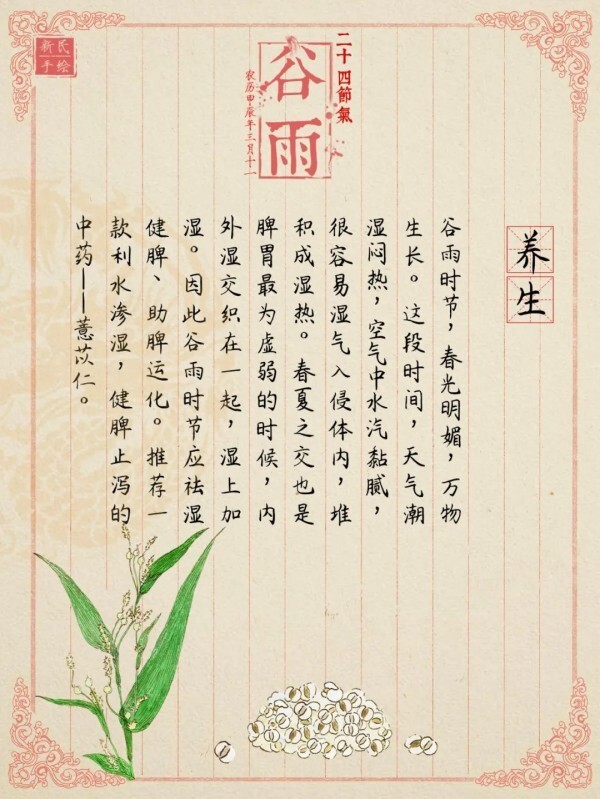 新民
手绘
二十四節氣
谷雨
农历甲辰年三月十一
养生
谷雨时节，春光明媚，万物
生长。这段时间，天气潮
湿闷热，空气中水汽黏腻，
很容易湿气入侵体内，堆
积成湿热。春夏之交也是
脾胃最为虚弱的时候，内
外湿交织在一起，湿上加
湿。因此谷雨时节应祛湿
健脾、助脾运化。推荐一
款利水渗湿，健脾止泻的
中药——薏苡仁。